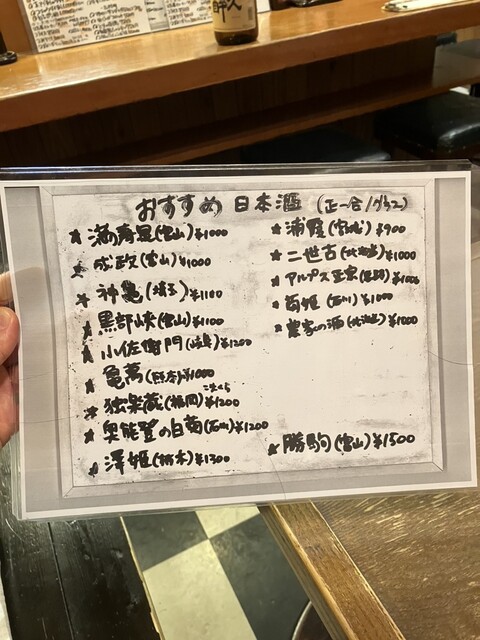 おすすめ 日本酒 (正一合/グラス)
満寿泉(富山)¥1000
成政(富山)¥1000
神亀(埼玉)¥1100
黒部峡(富山)¥1100
小左衛門(岐阜)¥1200
亀萬(熊本)¥1000
独楽蔵(福岡)¥1200
こまぐら
奥能登の白菊(石川)¥1200
澤姫(栃木)¥1300
浦霞(宮城)¥900
二世古(北海道)¥1000
アルプス正宗(長野)¥1000
菊姫(石川)¥1000
農家の酒(北海道)¥1000
勝駒(富山)¥1500